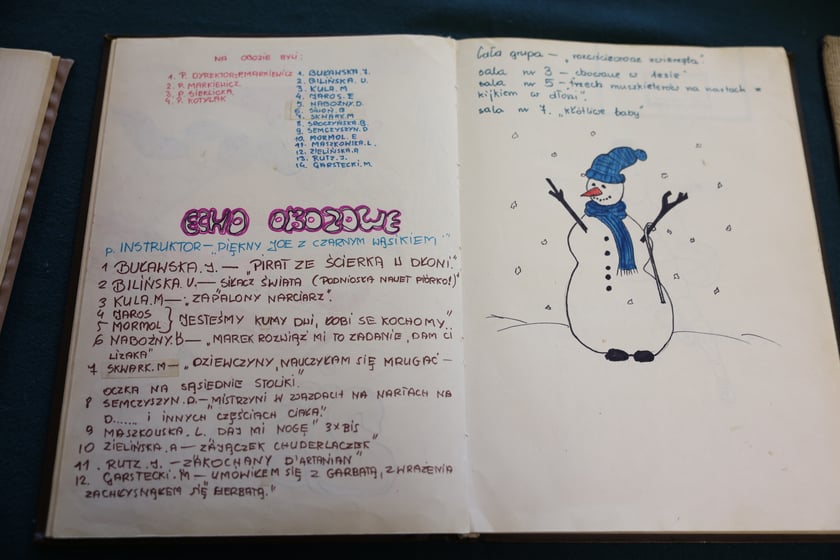 NA OBOZIE BYLI:
1. P. DYREKTOR-P.MARKIEWICZ
2. P. MARKIEWICZ
3. P. SIEKLICKA
4. P. KOTYLAK
1. BUŁAWSKA.J.
2. BILIŃSKA. U.
3. KULA.M
4. JAROS.E
5. NABOŻNY.D
6. SIWOŃ.B
7. SKWARK.M
8. SROCZYŃSKA.B.
9. SEMCZYSZYN.D
10. MORMOL.E
11. MASZKOWSKA.L.
12. ZIELIŃSKA.A
13. RUTZ.J.
14. GARSTECKI.M.
ECHO OBOZOWE
P. INSTRUKTOR - „PIĘKNY JOE Z CZARNYM WĄSIKIEM"
1 BUŁAWSKA.J. — „PIRAT ZE ŚCIERKĄ W DŁONI."
2 BILIŃSKA.U. — SIŁACZ ŚWIATA (PODNIOSŁA NAWET PIÓRKO!)"
3 KULA.M — „ZAPALONY NARCIARZ".
4 JAROS
5 MORMOL } „JESTEŚMY KUMY DWI, ŁOBI SE KOCHOMY."
6 NABOŻNY.D — „MAREK ROZWIĄŻ MI TO ZADANIE, DAM CI
LIZAKA"
7 SKWARK.M — „DZIEWCZYNY, NAUCZYŁAM SIĘ MRUGAĆ —
OCZKA NA SĄSIEDNIE STOLIKI.
8 SEMCZYSZYN.D. — „MISTRZYNI W ZJAZDACH NA NARTACH NA
D...... I INNYCH CZĘŚCIACH CIAŁA."
9 MASZKOWSKA.L. DAJ MI NOGĘ" 3×BIS
10 ZIELIŃSKA.A — „ZAJĄCZEK CHUDERLACZEK"
11. RUTZ.J. — „ZAKOCHANY D'ARTANIAN"
12. GARSTECKI.M — UMÓWIŁEM SIĘ Z GARBATĄ, Z WRAŻENIA
ZACHŁYSNĄŁEM SIĘ "HERBATĄ."
Cała grupa — „rozwścieczone zwierzęta"
sala nr 3 — chowane w lesie"
sala nr 5 — trzech muszkieterów na nartach z
kijkiem w dłoni."
sala nr 7. „kłótliwe baby"